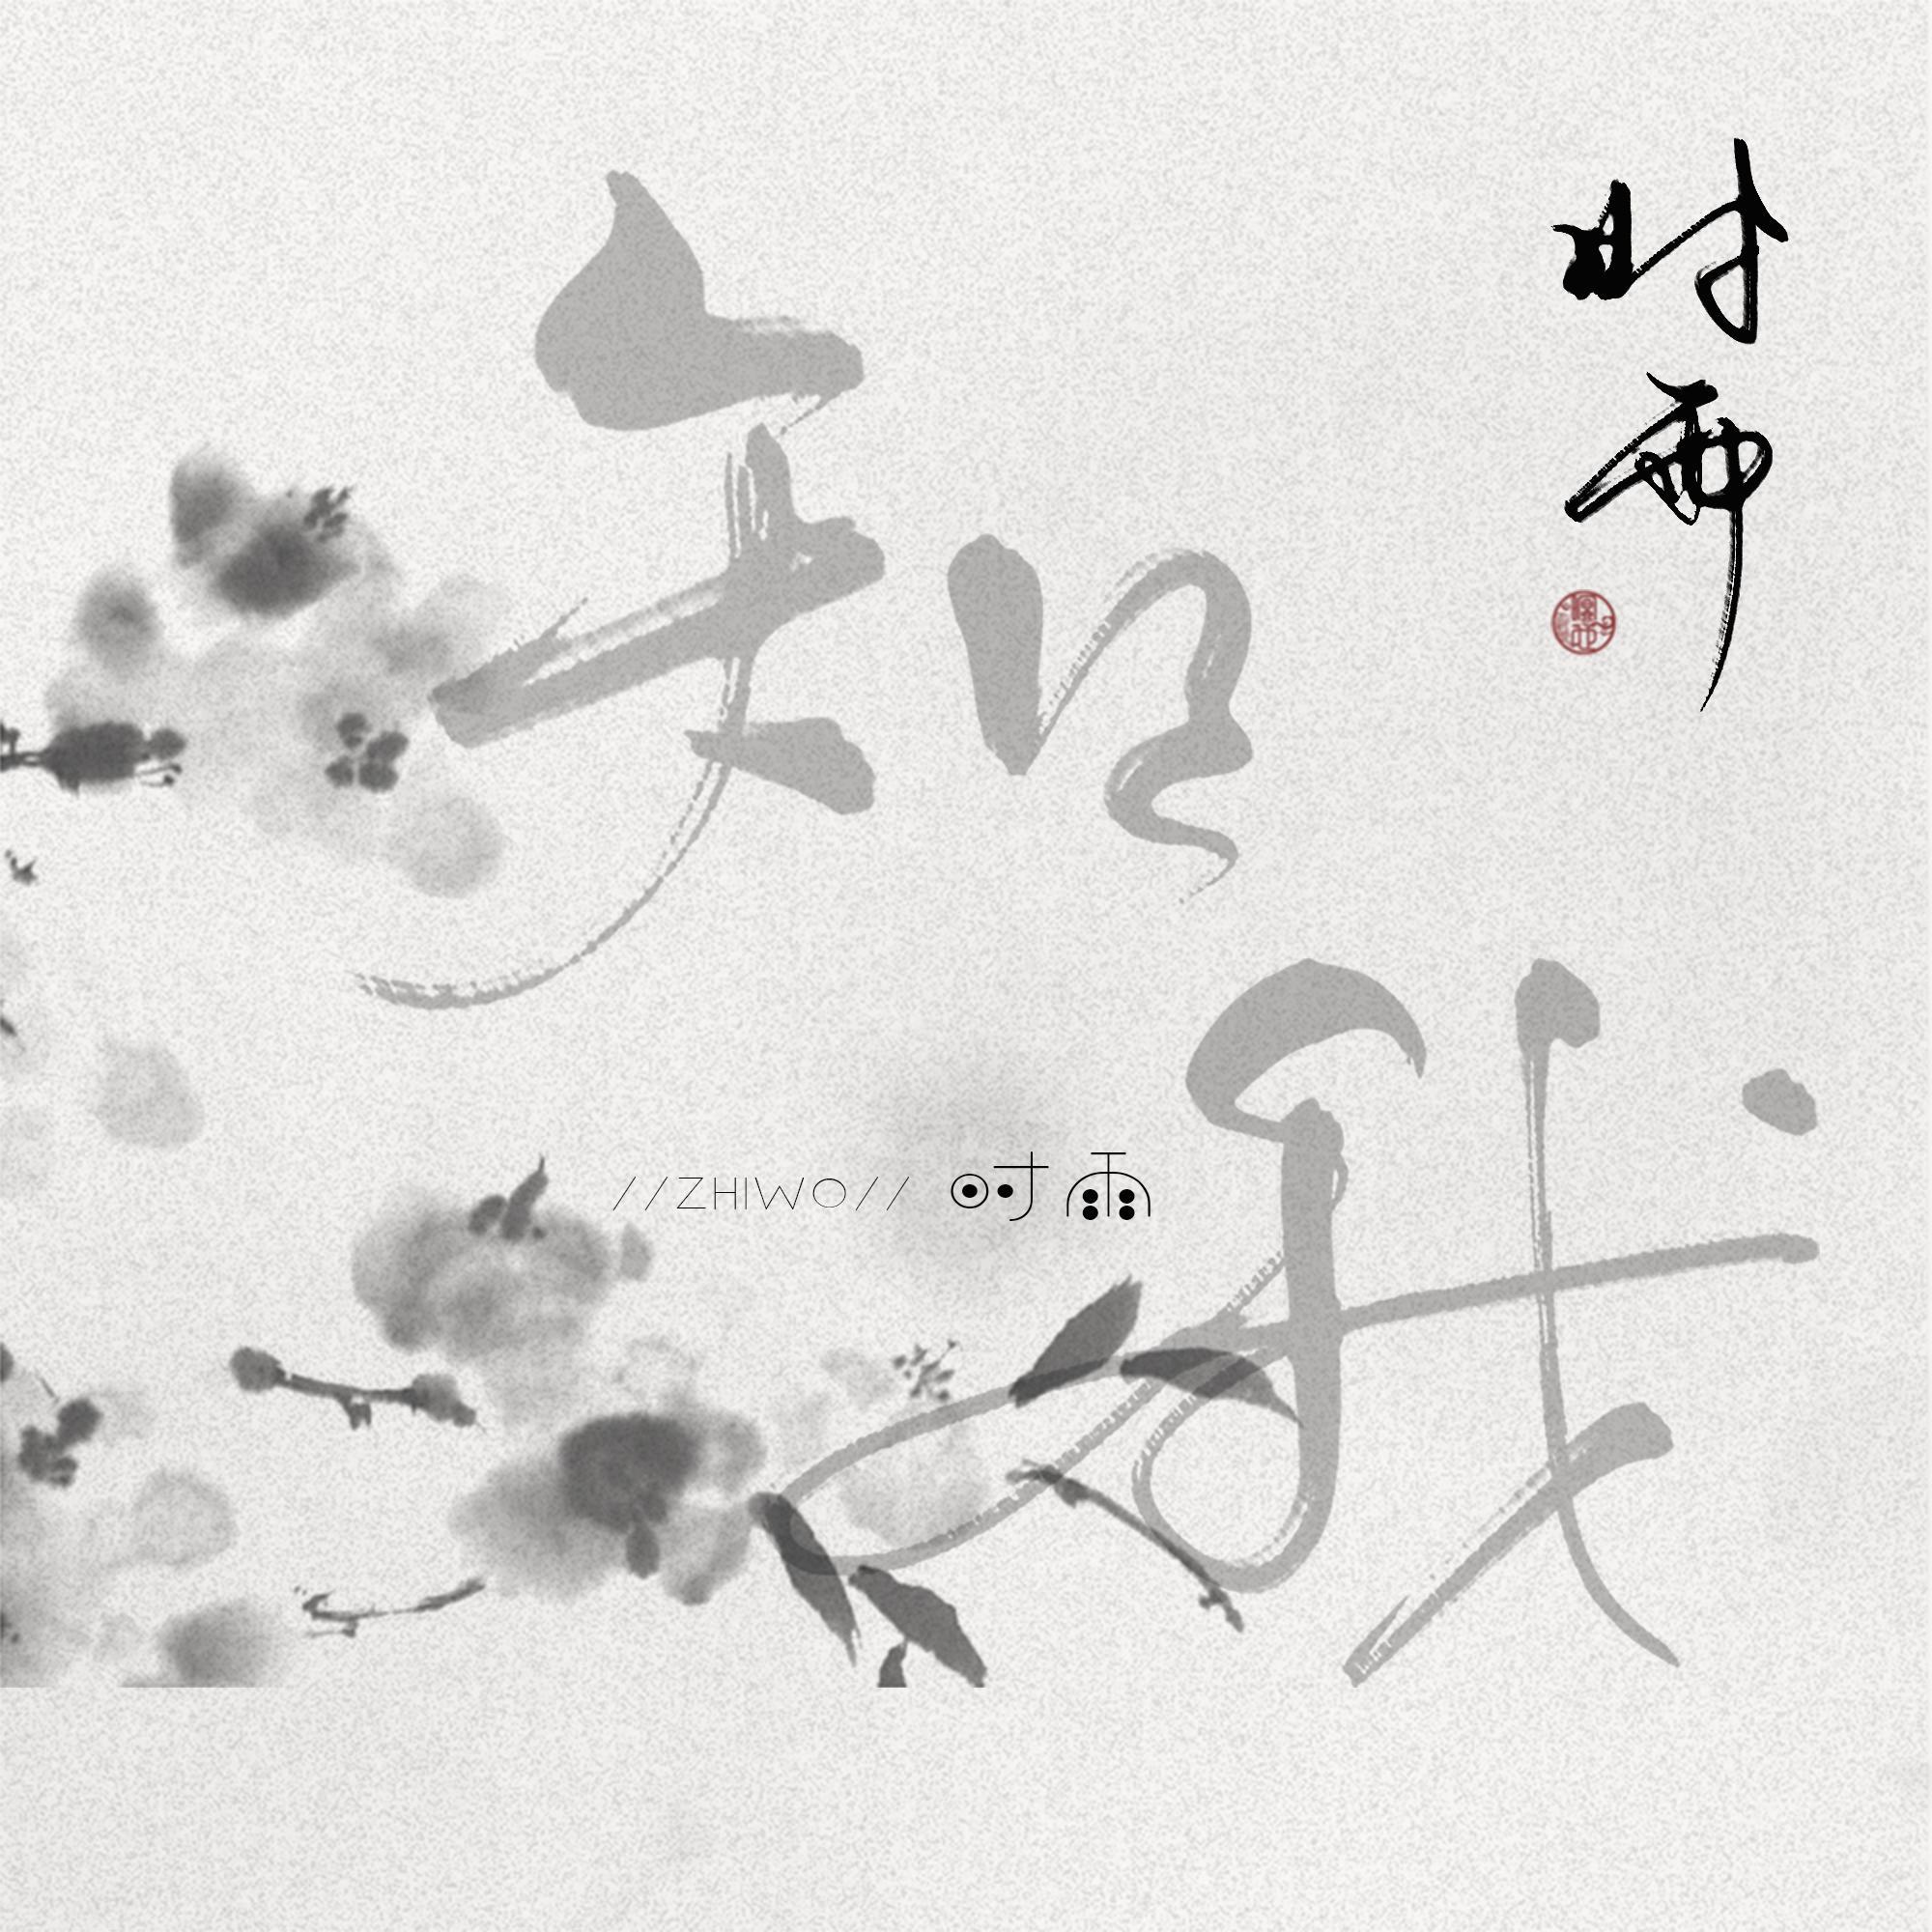 知
我
时雨
//ZHIWO// 时雨